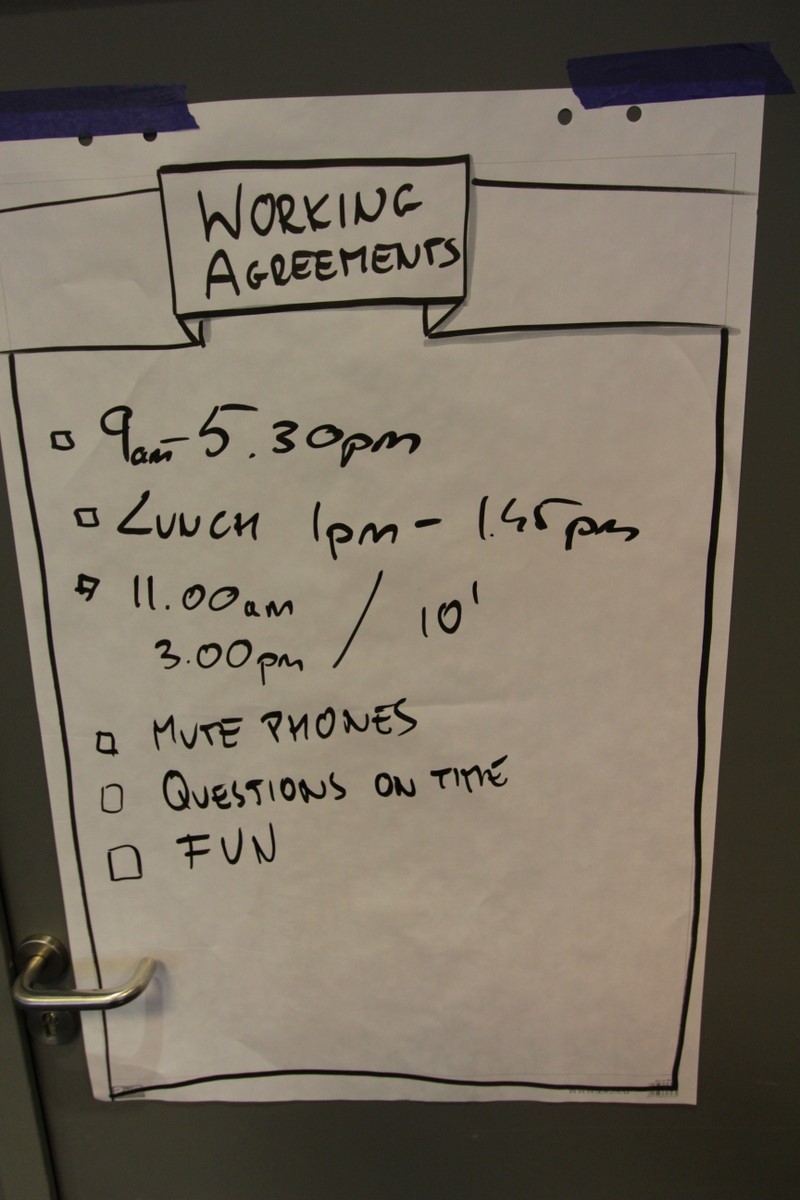 WORKING
AGREEMENTS
9am - 5.30pm
LUNCH 1pm - 1.45pm
11.00am / 10'
3.00pm
MUTE PHONES
QUESTIONS ON TIME
FUN